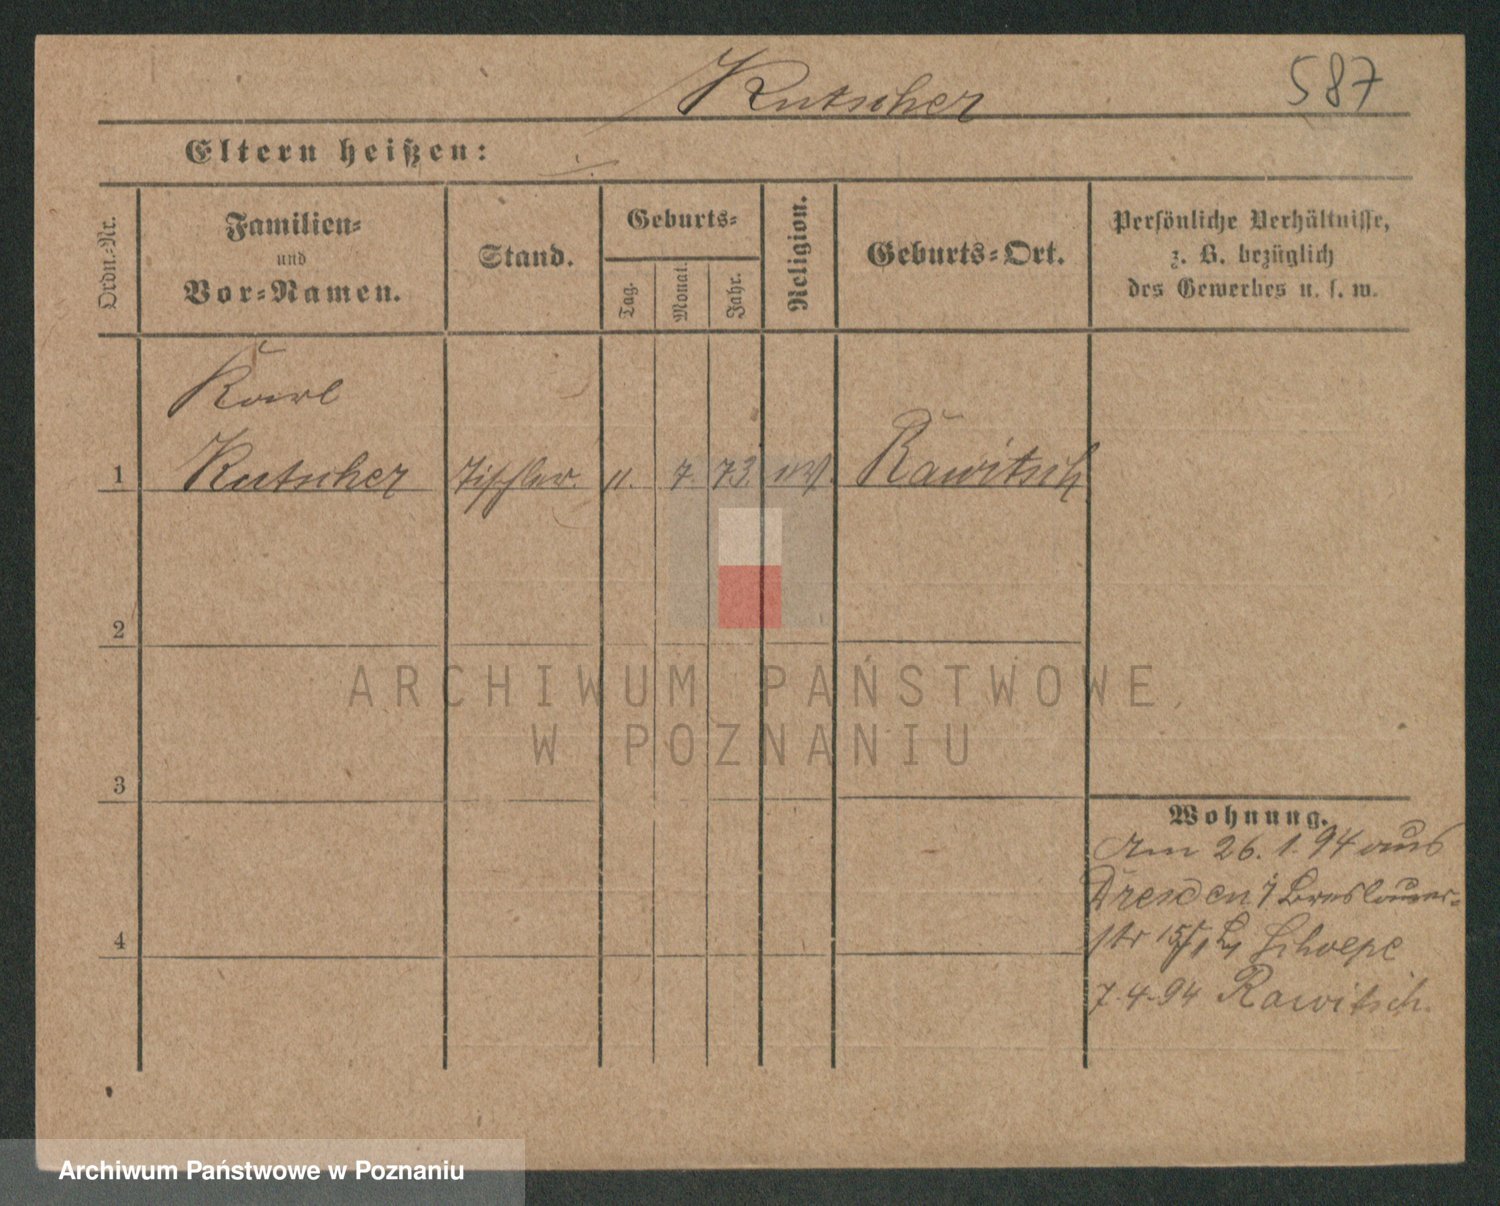 Kutscher
587
Eltern heißen:
Ordn.-Nr.
Familien-
und
Vor-Namen.
Stand.
Geburts-
Tag.
Monat.
Jahr.
Religion.
Geburts-Ort.
Persönliche Verhältnisse,
z. B. bezüglich
des Gewerbes u. s. w.
Karl
1 Kutscher Tischler 11. 7. 73. Rawitsch
2
3
4
Wohnung.
Am 26.1.94 aus
Dresden Breslauer-
str 15
7.4.94 Rawitsch.
ARCHIWUM PAŃSTWOWE
W POZNANIU
Archiwum Państwowe w Poznaniu